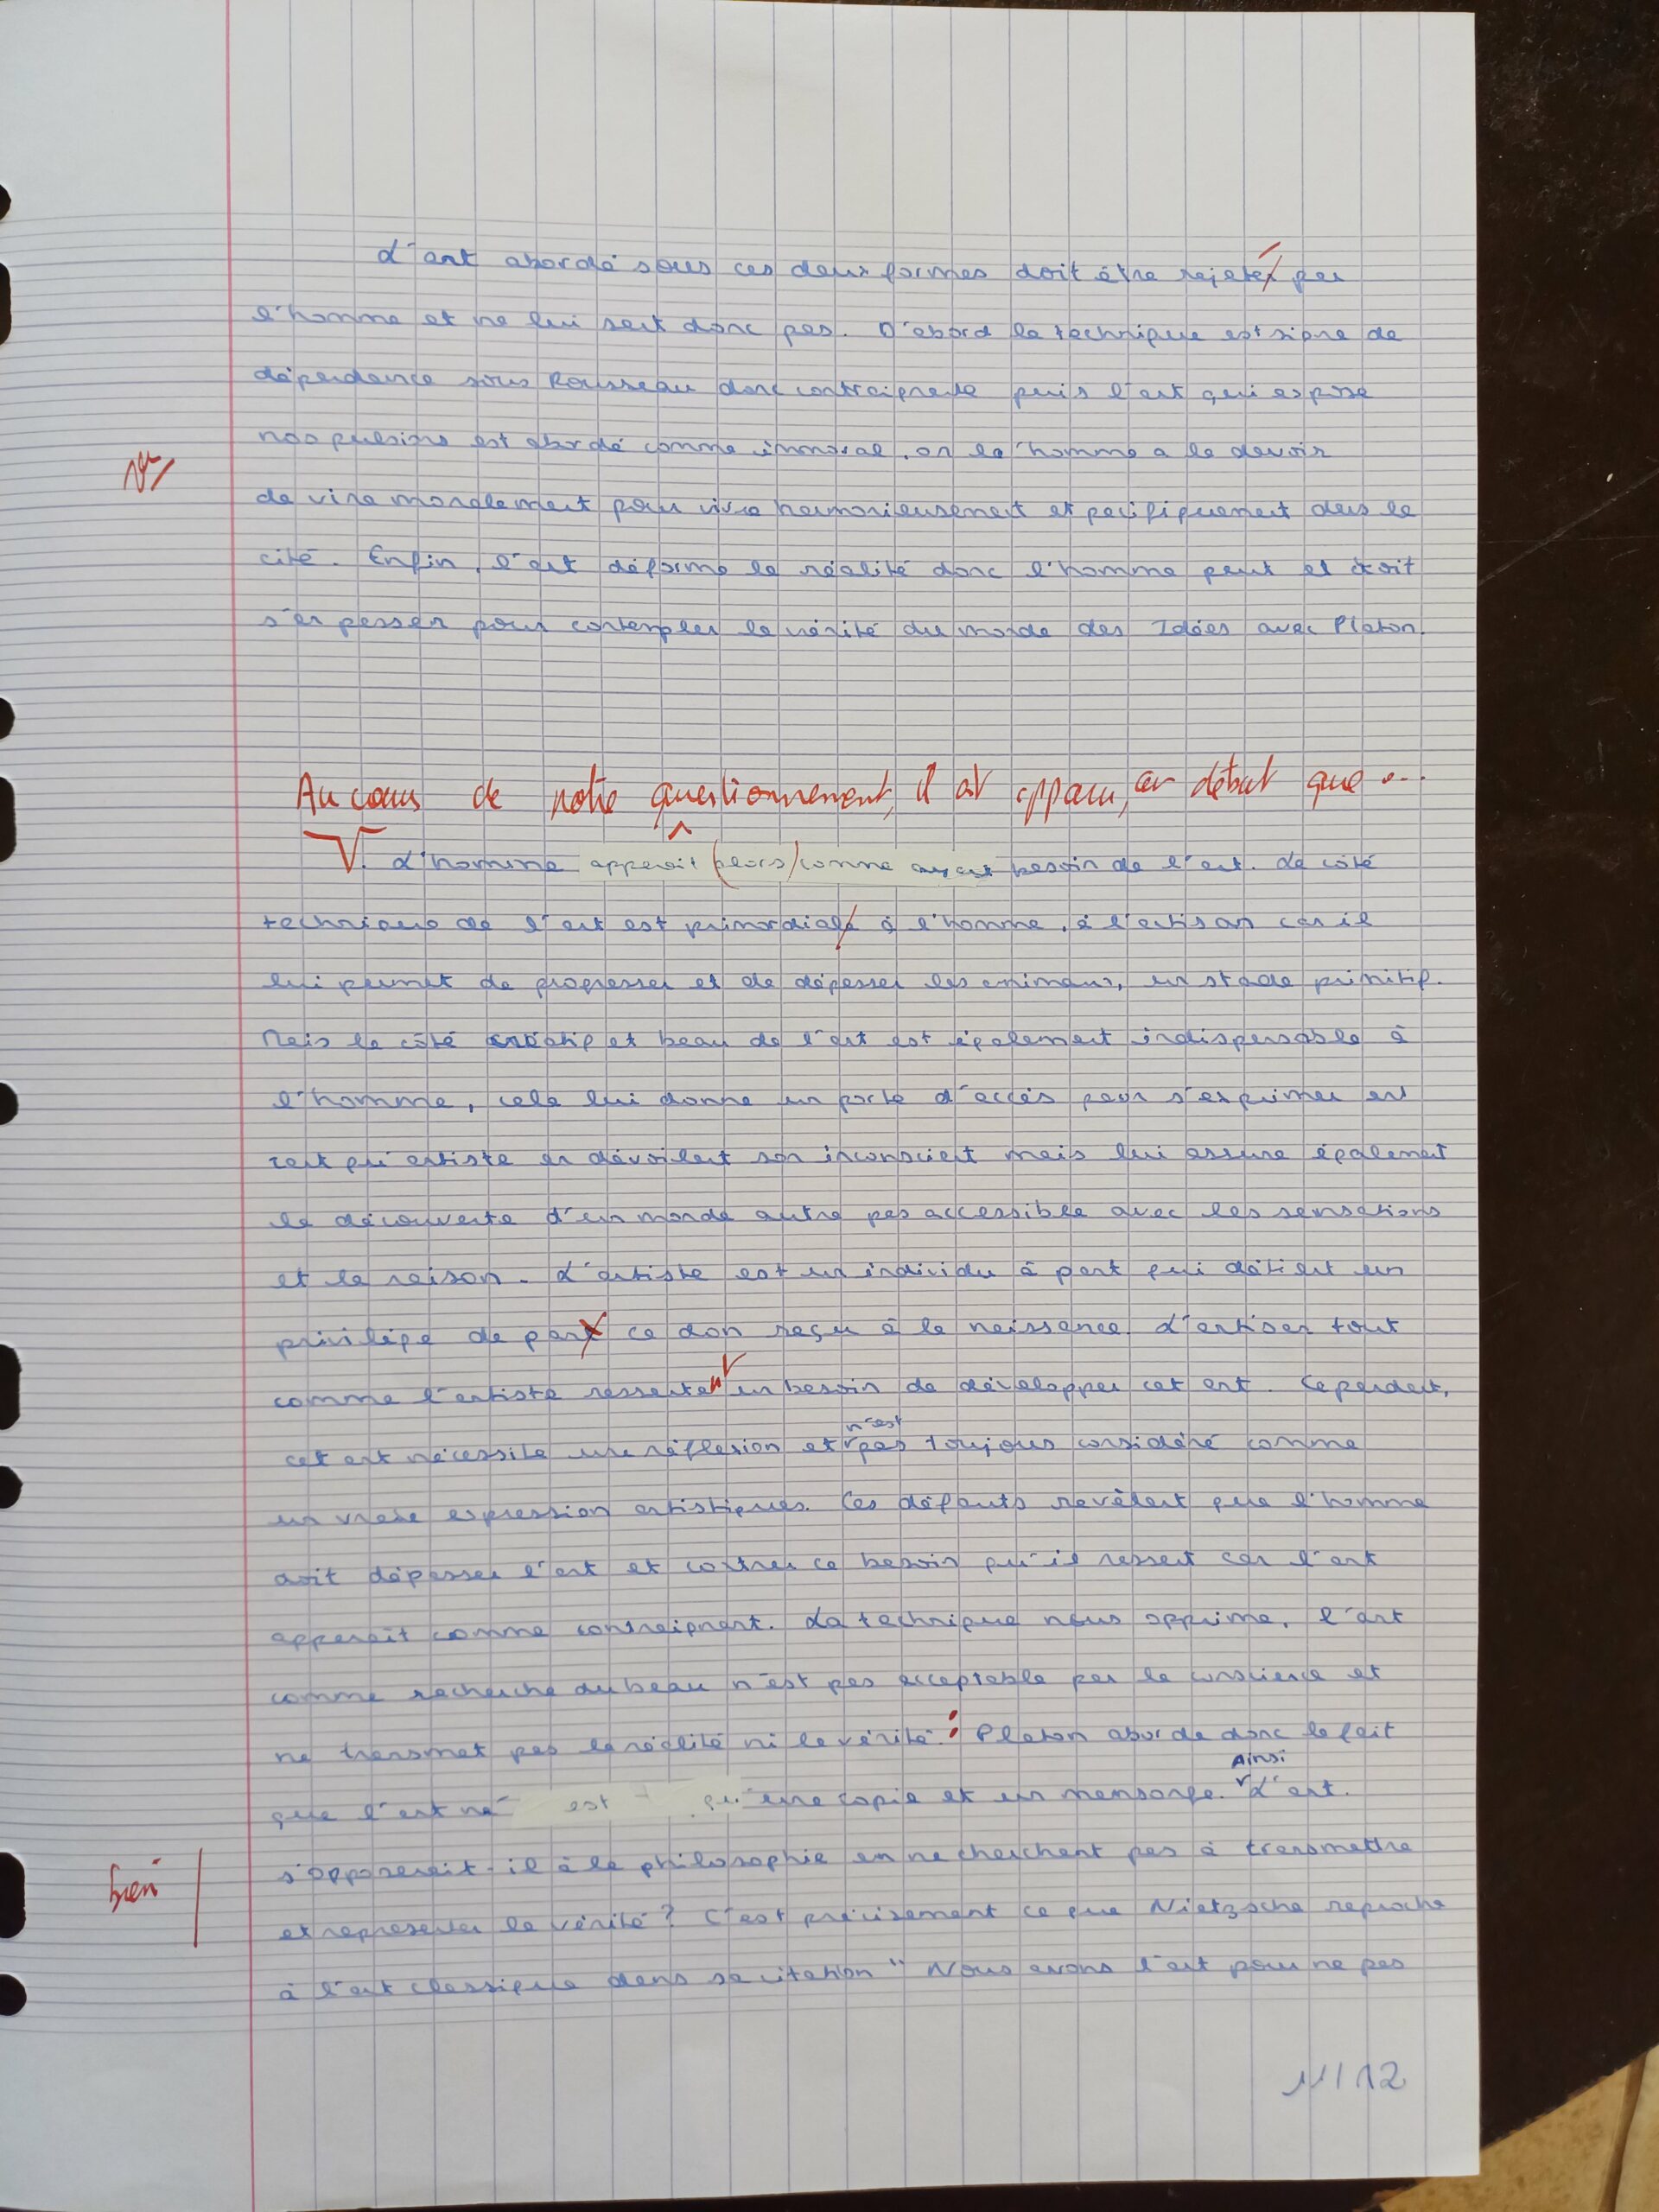 L'art abordé sous ces deux formes doit être rejeter par
l'homme et ne lui sert donc pas. D'abord la technique est signe de
dépendance sous Rousseau donc contraignante puis l'art qui expose
nos pulsions est abordé comme immoral, or la l'homme a le devoir
de vivre moralement pour vivre harmonieusement et pacifiquement dans la
cité. Enfin, l'art déforme la réalité donc l'homme peut et doit
s'en passer pour contempler la vérité du monde des Idées avec Platon.
Au cours de notre questionnement, il est apparu, en début que ...
L'homme apparait (alors) comme ayant besoin de l'art. Le côté
technique de l'art est primordiale à l'homme, à l'artisan car il
lui permet de progresser et de dépasser les animaux, un stade primitif.
Mais le côté créatif et beau de l'art est également indispensable à
l'homme, cela lui donne un porte d'accès pour s'exprimer en
tant qu'artiste en dévoilant son inconscient mais lui assure également
la découverte d'un monde autre pas accessible avec les sensations
et la raison. L'artiste est un individu à part qui détient un
privilège de part ce don reçu à la naissance. L'artisan tout
comme l'artiste ressentent un besoin de développer cet art. Cependant,
n'est
cet art nécessite une réflexion et pas toujours considéré comme
un vraie expression artistiques. Ces défauts revèlent que l'homme
doit dépasser l'art et contrer ce besoin qu'il ressent car l'art
apparait comme contraignant. La technique nous opprime, l'art
comme recherche du beau n'est pas acceptable par la conscience et
ne transmet pas la réalité ni la vérité : Platon aborde donc le fait
Ainsi
que l'art n' est qu'une copie et un mensonge. L'art
s'opposerait-il à la philosophie en ne cherchant pas à transmettre
bien
et représenter la vérité ? C'est précisément ce que Nietzsche reproche
à l'art classique dans sa citation " Nous avons l'art pour ne pas
11/12